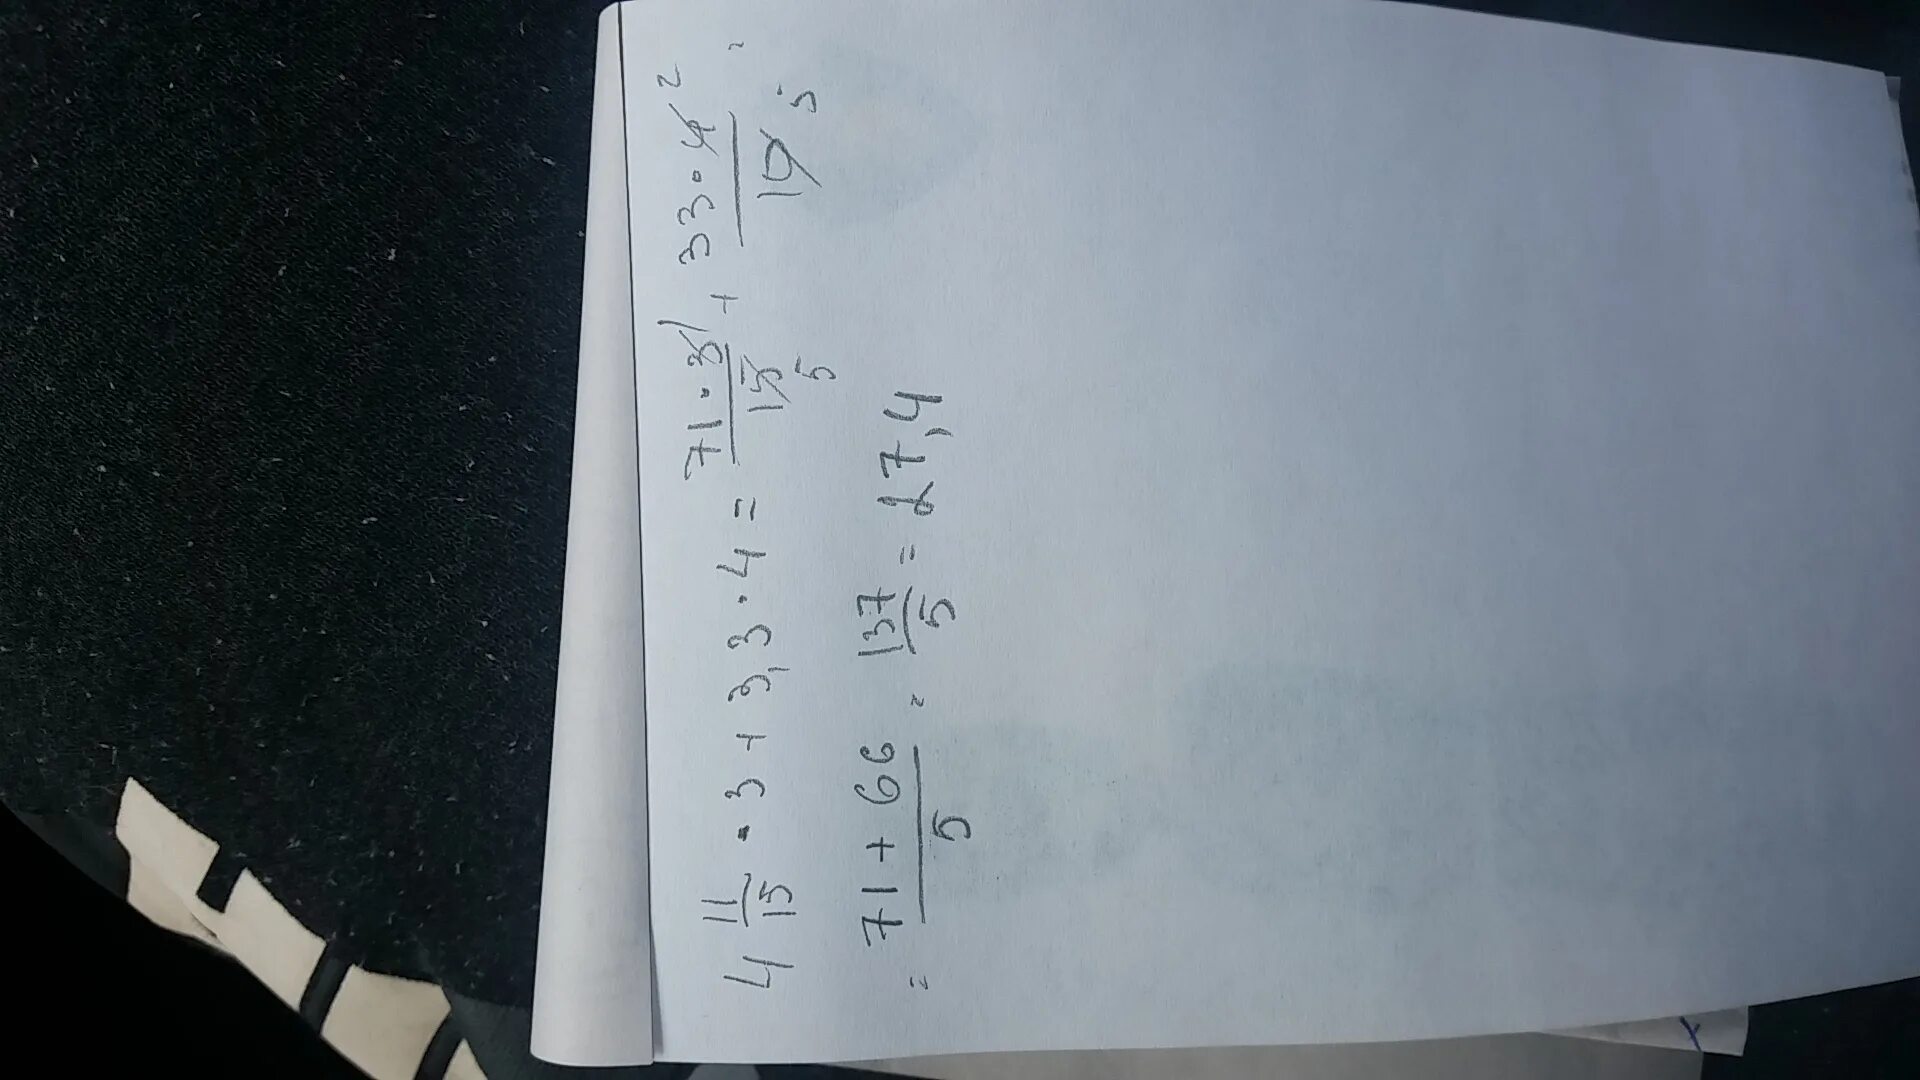 4 11/15 · 3 + 3,3 · 4 = 71·3/15 1 5 + 33·4/10 2 5 =
= 71 + 66/5 = 137/5 = 27,4